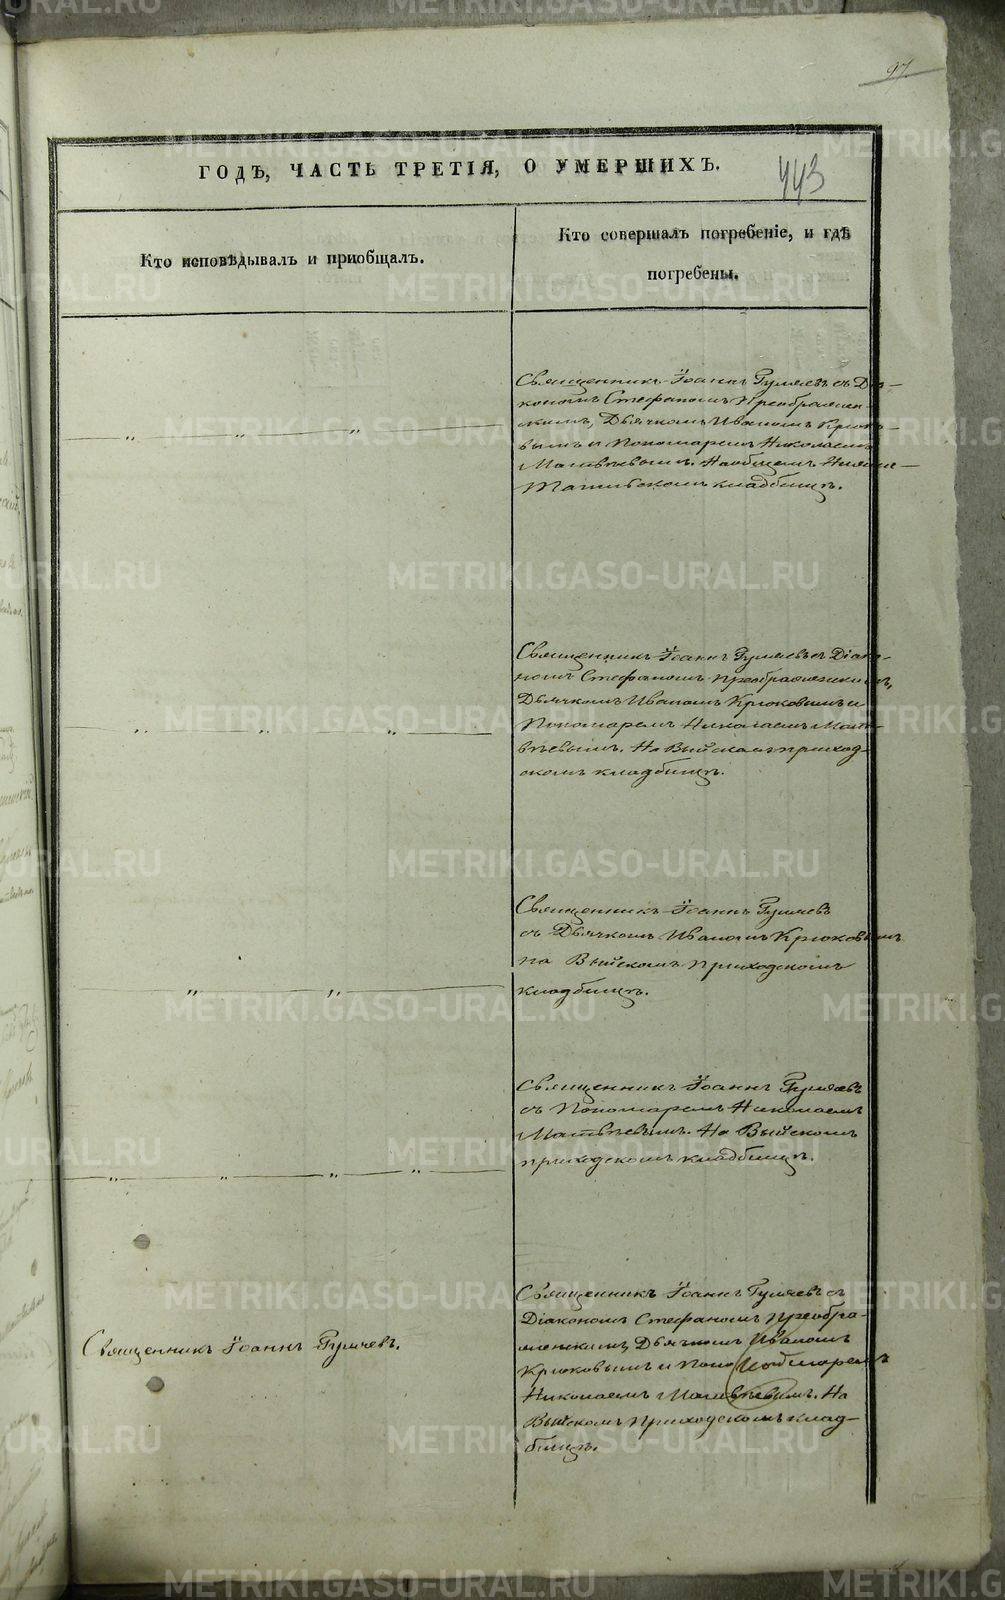 97.
ГОДѢ, ЧАСТЬ ТРЕТІЯ, О УМЕРШИХЪ.
443
Кто исповѣдывалъ и пріобщалъ.
Кто совершалъ погребеніе, и гдѣ
погребены.
Священникъ Іоаннъ Гуляевъ съ Діа-
кономъ Стефаномъ Преображен-
скимъ, Дьячкомъ Иваномъ Крюко-
вымъ и Пономаремъ Николаемъ
Матвѣевымъ. На общемъ Нижне-
Тагильскомъ кладбищѣ.
Священникъ Іоаннъ Гуляевъ съ Діако-
номъ Стефаномъ Преображенскимъ,
Дьячкомъ Иваномъ Крюковымъ и
Пономаремъ Николаемъ Мат-
вѣевымъ. На Выйскомъ приход-
скомъ кладбищѣ.
Священникъ Іоаннъ Гуляевъ
съ Дьячкомъ Иваномъ Крюковымъ
на Выйскомъ приходскомъ
кладбищѣ.
Священникъ Іоаннъ Гуляевъ
съ Пономаремъ Николаемъ
Матвѣевымъ. На Выйскомъ
приходскомъ кладбищѣ.
Священникъ Іоаннъ Гуляевъ.
Священникъ Іоаннъ Гуляевъ съ
Діакономъ Стефаномъ Преобра-
женскимъ Дьячкомъ Иваномъ
Крюковымъ и Поно
Николаемъ Матвѣевымъ. На
Выйскомъ Приходскомъ клад-
бищѣ.
METRIKI.GASO-URAL.RU